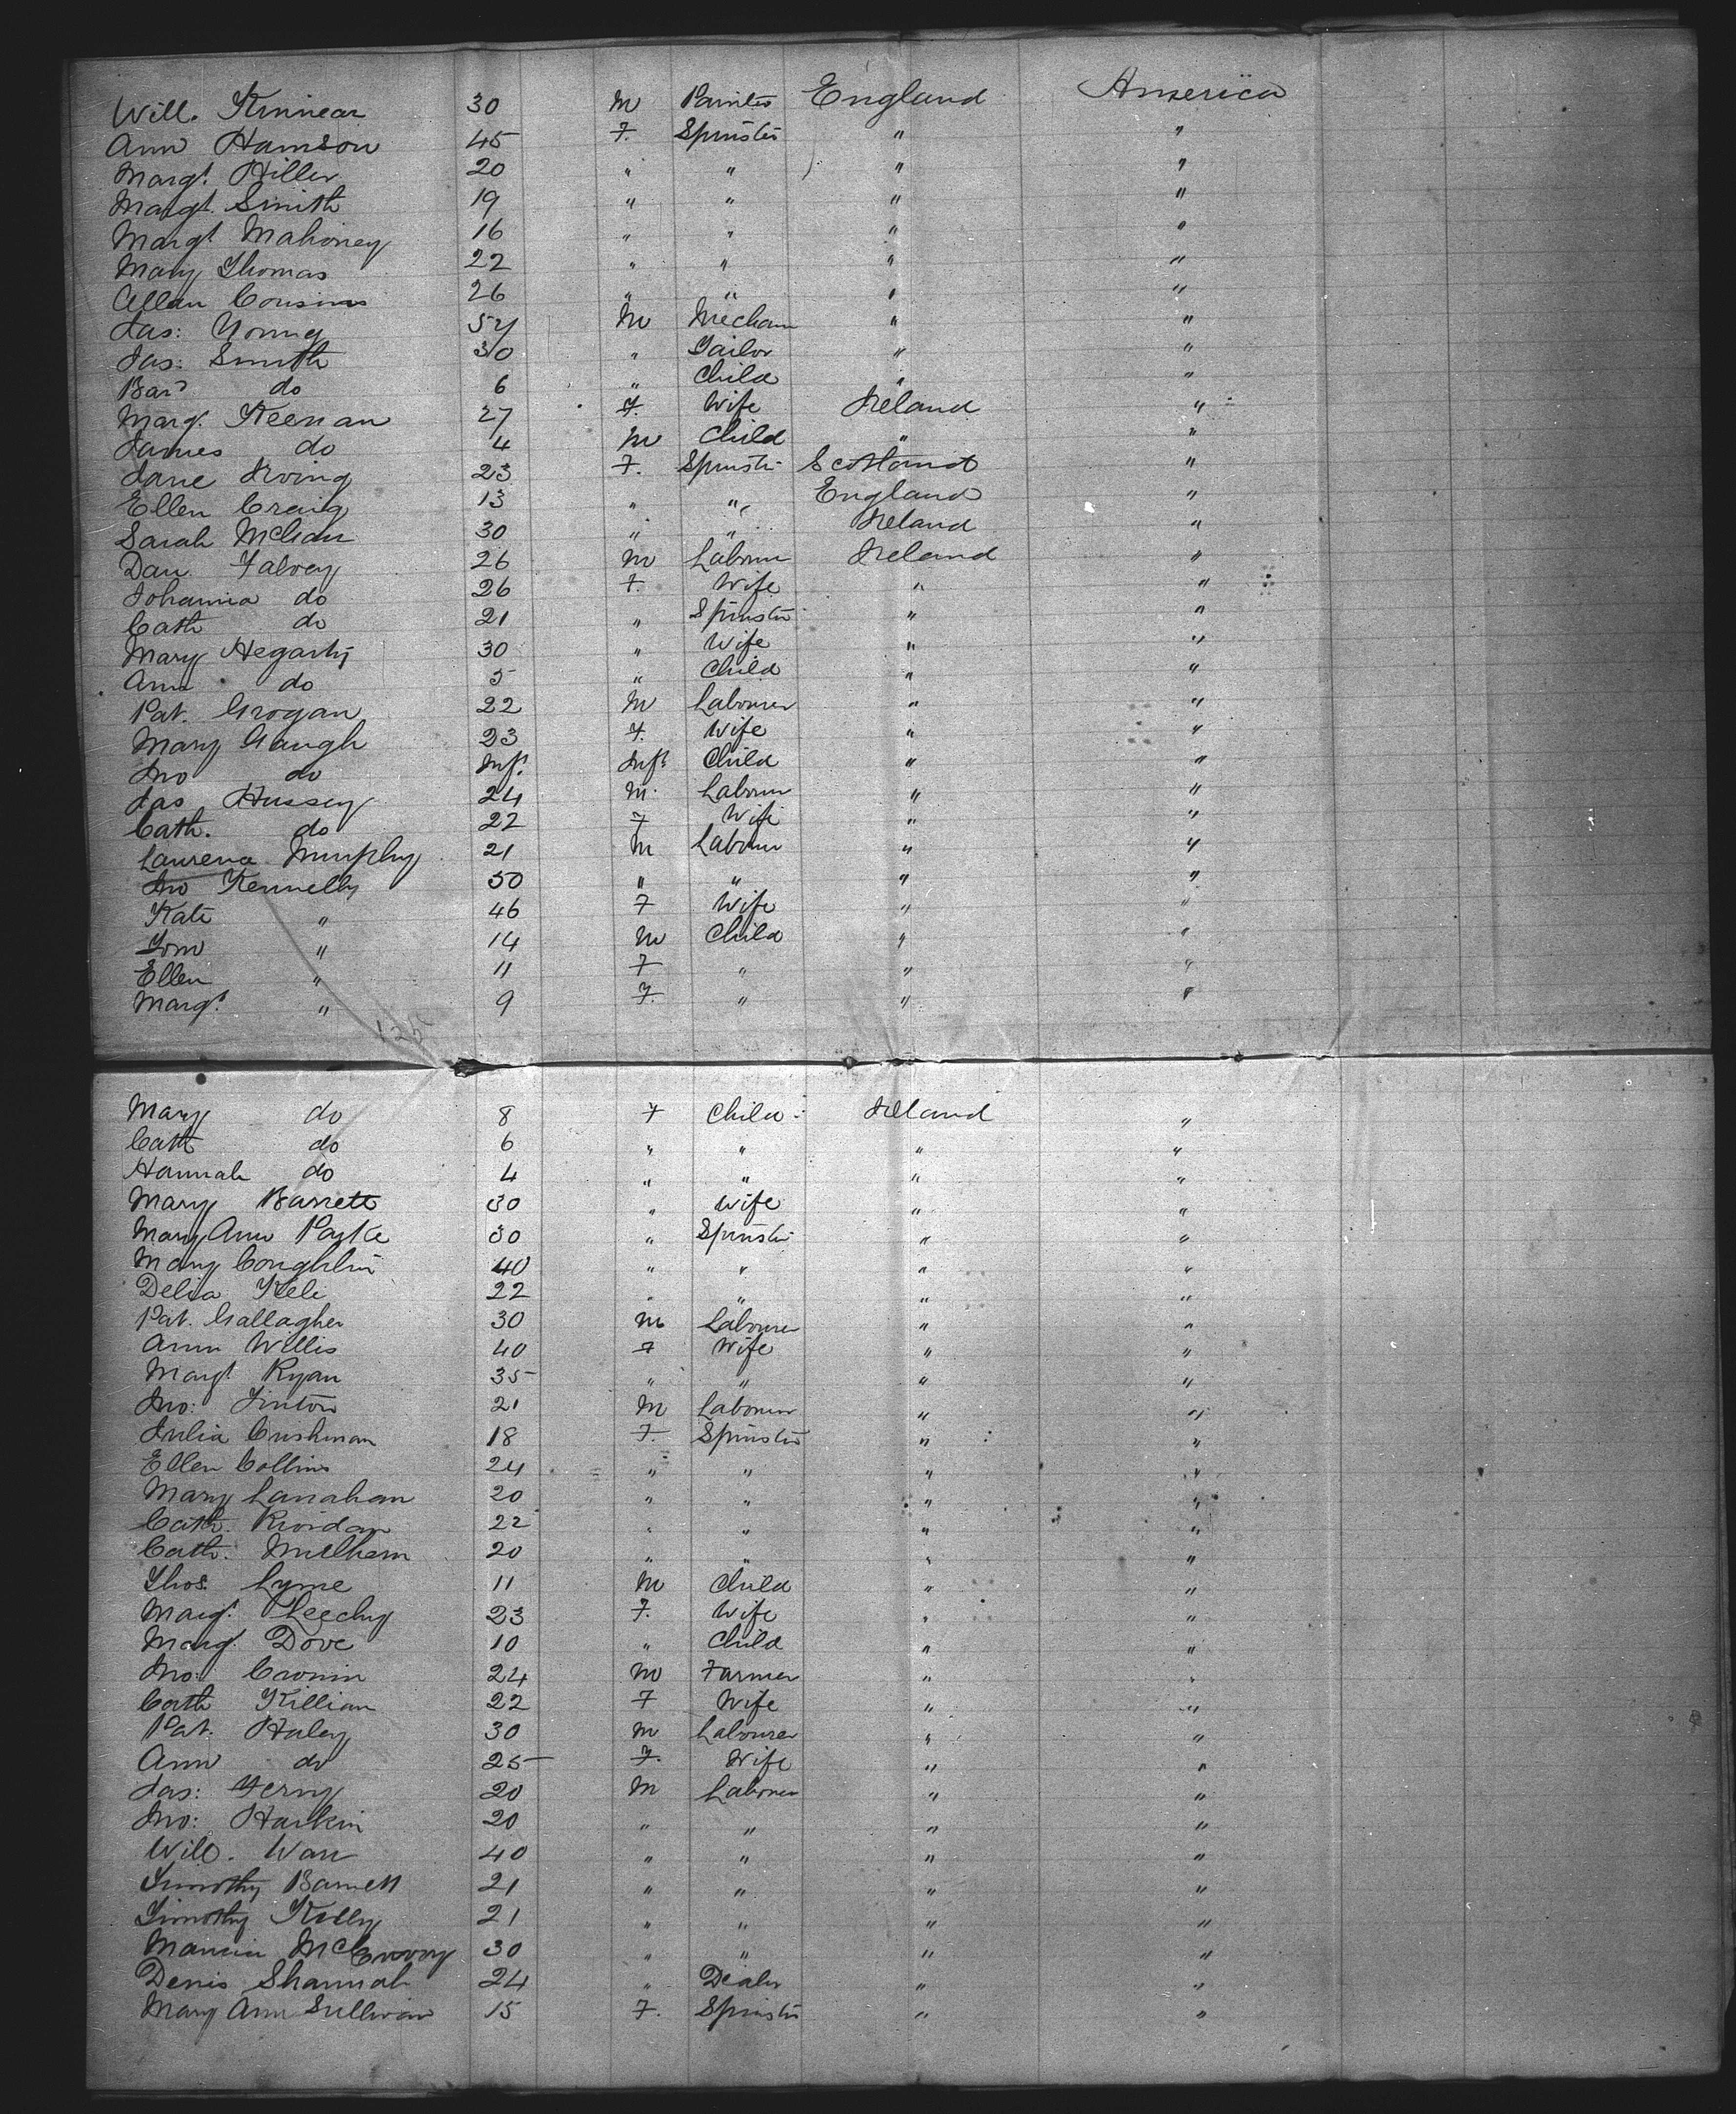 Will. Kinnear 30 M Painter England America
Ann Hamson 45 F. Spinster " "
Margt. Hiller 20 " " " "
Margt. Smith 19 " " " "
Margt Mahoney 16 " " " "
Mary Thomas 22 " " " "
Allan Cousins 26 " " " "
Jas: Young 54 M Mechan " "
Jas: Smith 30 " Tailor " "
do 6 " Child " "
Marg. Keenan 27 F. Wife Ireland "
James do 4 M Child " "
Jane Irving 23 F. Spinstr Scotland "
Ellen Craig 13 " " England "
Sarah McLean 30 " " Ireland "
Dan Falvey 26 M Labourer Ireland "
Johanna do 26 F. Wife " "
Cath do 21 " Spinster " "
Mary Hegarty 30 " Wife " "
Ann do 5 " Child " "
Pat. Grogan 22 M Labourer " "
Mary Gaugh 23 F. Wife " "
Jno do Inft. Inft Child " "
Jas Hussey 24 M. Labourer " "
Cath. do 22 F Wife " "
Murphy 21 M Labourer " "
Jno Kennelly 50 " " " "
Kate " 46 F Wife " "
Tom " 14 M Child " "
Ellen " 11 F " " "
Margt " 9 F. " " "
Mary do 8 F Child Ireland "
Cath do 6 " " " "
Hannah do 4 " " " "
Mary Barrett 30 " Wife " "
Mary Ann 30 " Spinstr " "
Mary Coughlin 40 " " " "
Delia 22 " " " "
Pat. Gallagher 30 M Labourer " "
Ann Willis 40 F Wife " "
Margt Ryan 35 " " " "
Jno: Linton 21 M Labourer " "
Julia Cushman 18 F. Spinster " "
Ellen Collins 24 " " " "
Mary Lanahan 20 " " " "
Cath. Riordan 22 " " " "
Cath. 20 " " " "
Thos. Lyme 11 M Child " "
Margt. Leechy 23 F. Wife " "
Margt. Dove 10 " Child " "
Jno: Cronin 24 M Farmer " "
Cath Killian 22 F Wife " "
Pat. Haley 30 M Labourer " "
Ann do 25 F. Wife " "
Jas: 20 M Labourer " "
Jno: Harkin 20 " " " "
Will. 40 " " " "
Timothy Barnett 21 " " " "
Timothy Kelly 21 " " " "
30 " " " "
Denis Shannah 24 " Dealer " "
Mary Ann Sullivan 15 F. Spinster " "